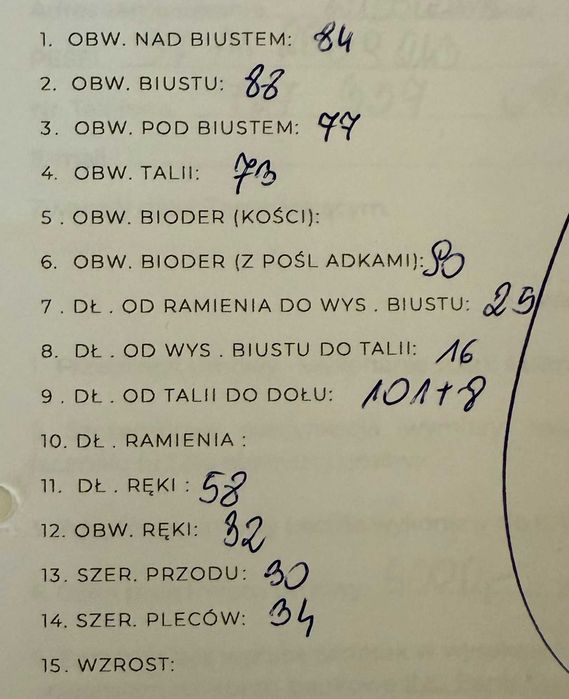 1. OBW. NAD BIUSTEM: 84
2. OBW. BIUSTU: 88
3. OBW. POD BIUSTEM: 77
4. OBW. TALII: 73
5. OBW. BIODER (KOŚCI):
6. OBW. BIODER (Z POŚLADKAMI): 90
7. DŁ. OD RAMIENIA DO WYS. BIUSTU: 25
8. DŁ. OD WYS. BIUSTU DO TALII: 16
9. DŁ. OD TALII DO DOŁU: 101+8
10. DŁ. RAMIENIA:
11. DŁ. RĘKI: 58
12. OBW. RĘKI: 32
13. SZER. PRZODU: 30
14. SZER. PLECÓW: 34
15. WZROST: